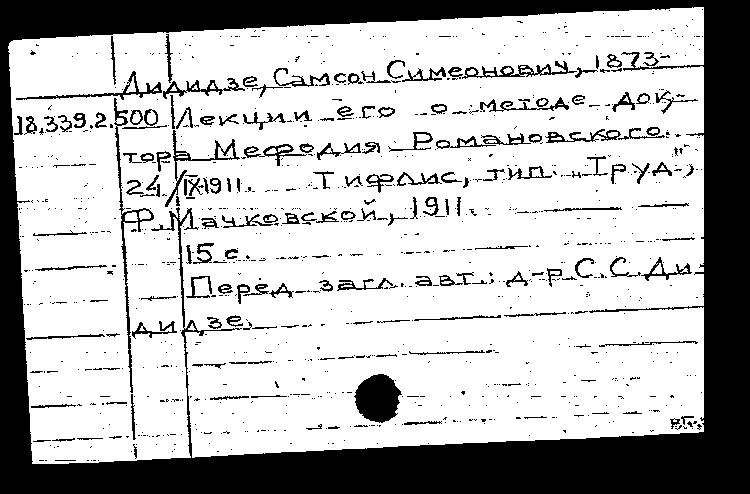 Дидидзе, Самсон Симеонович, 1873-
18.339.2.500 Лекции его о методе док-
тора Мефодия Романовского.
24/IX 1911. Тифлис, тип. „Труд",
Ф. Мачковской, 1911.
15 с.
Перед загл. авт.: д-р С. С. Ди-
дидзе.